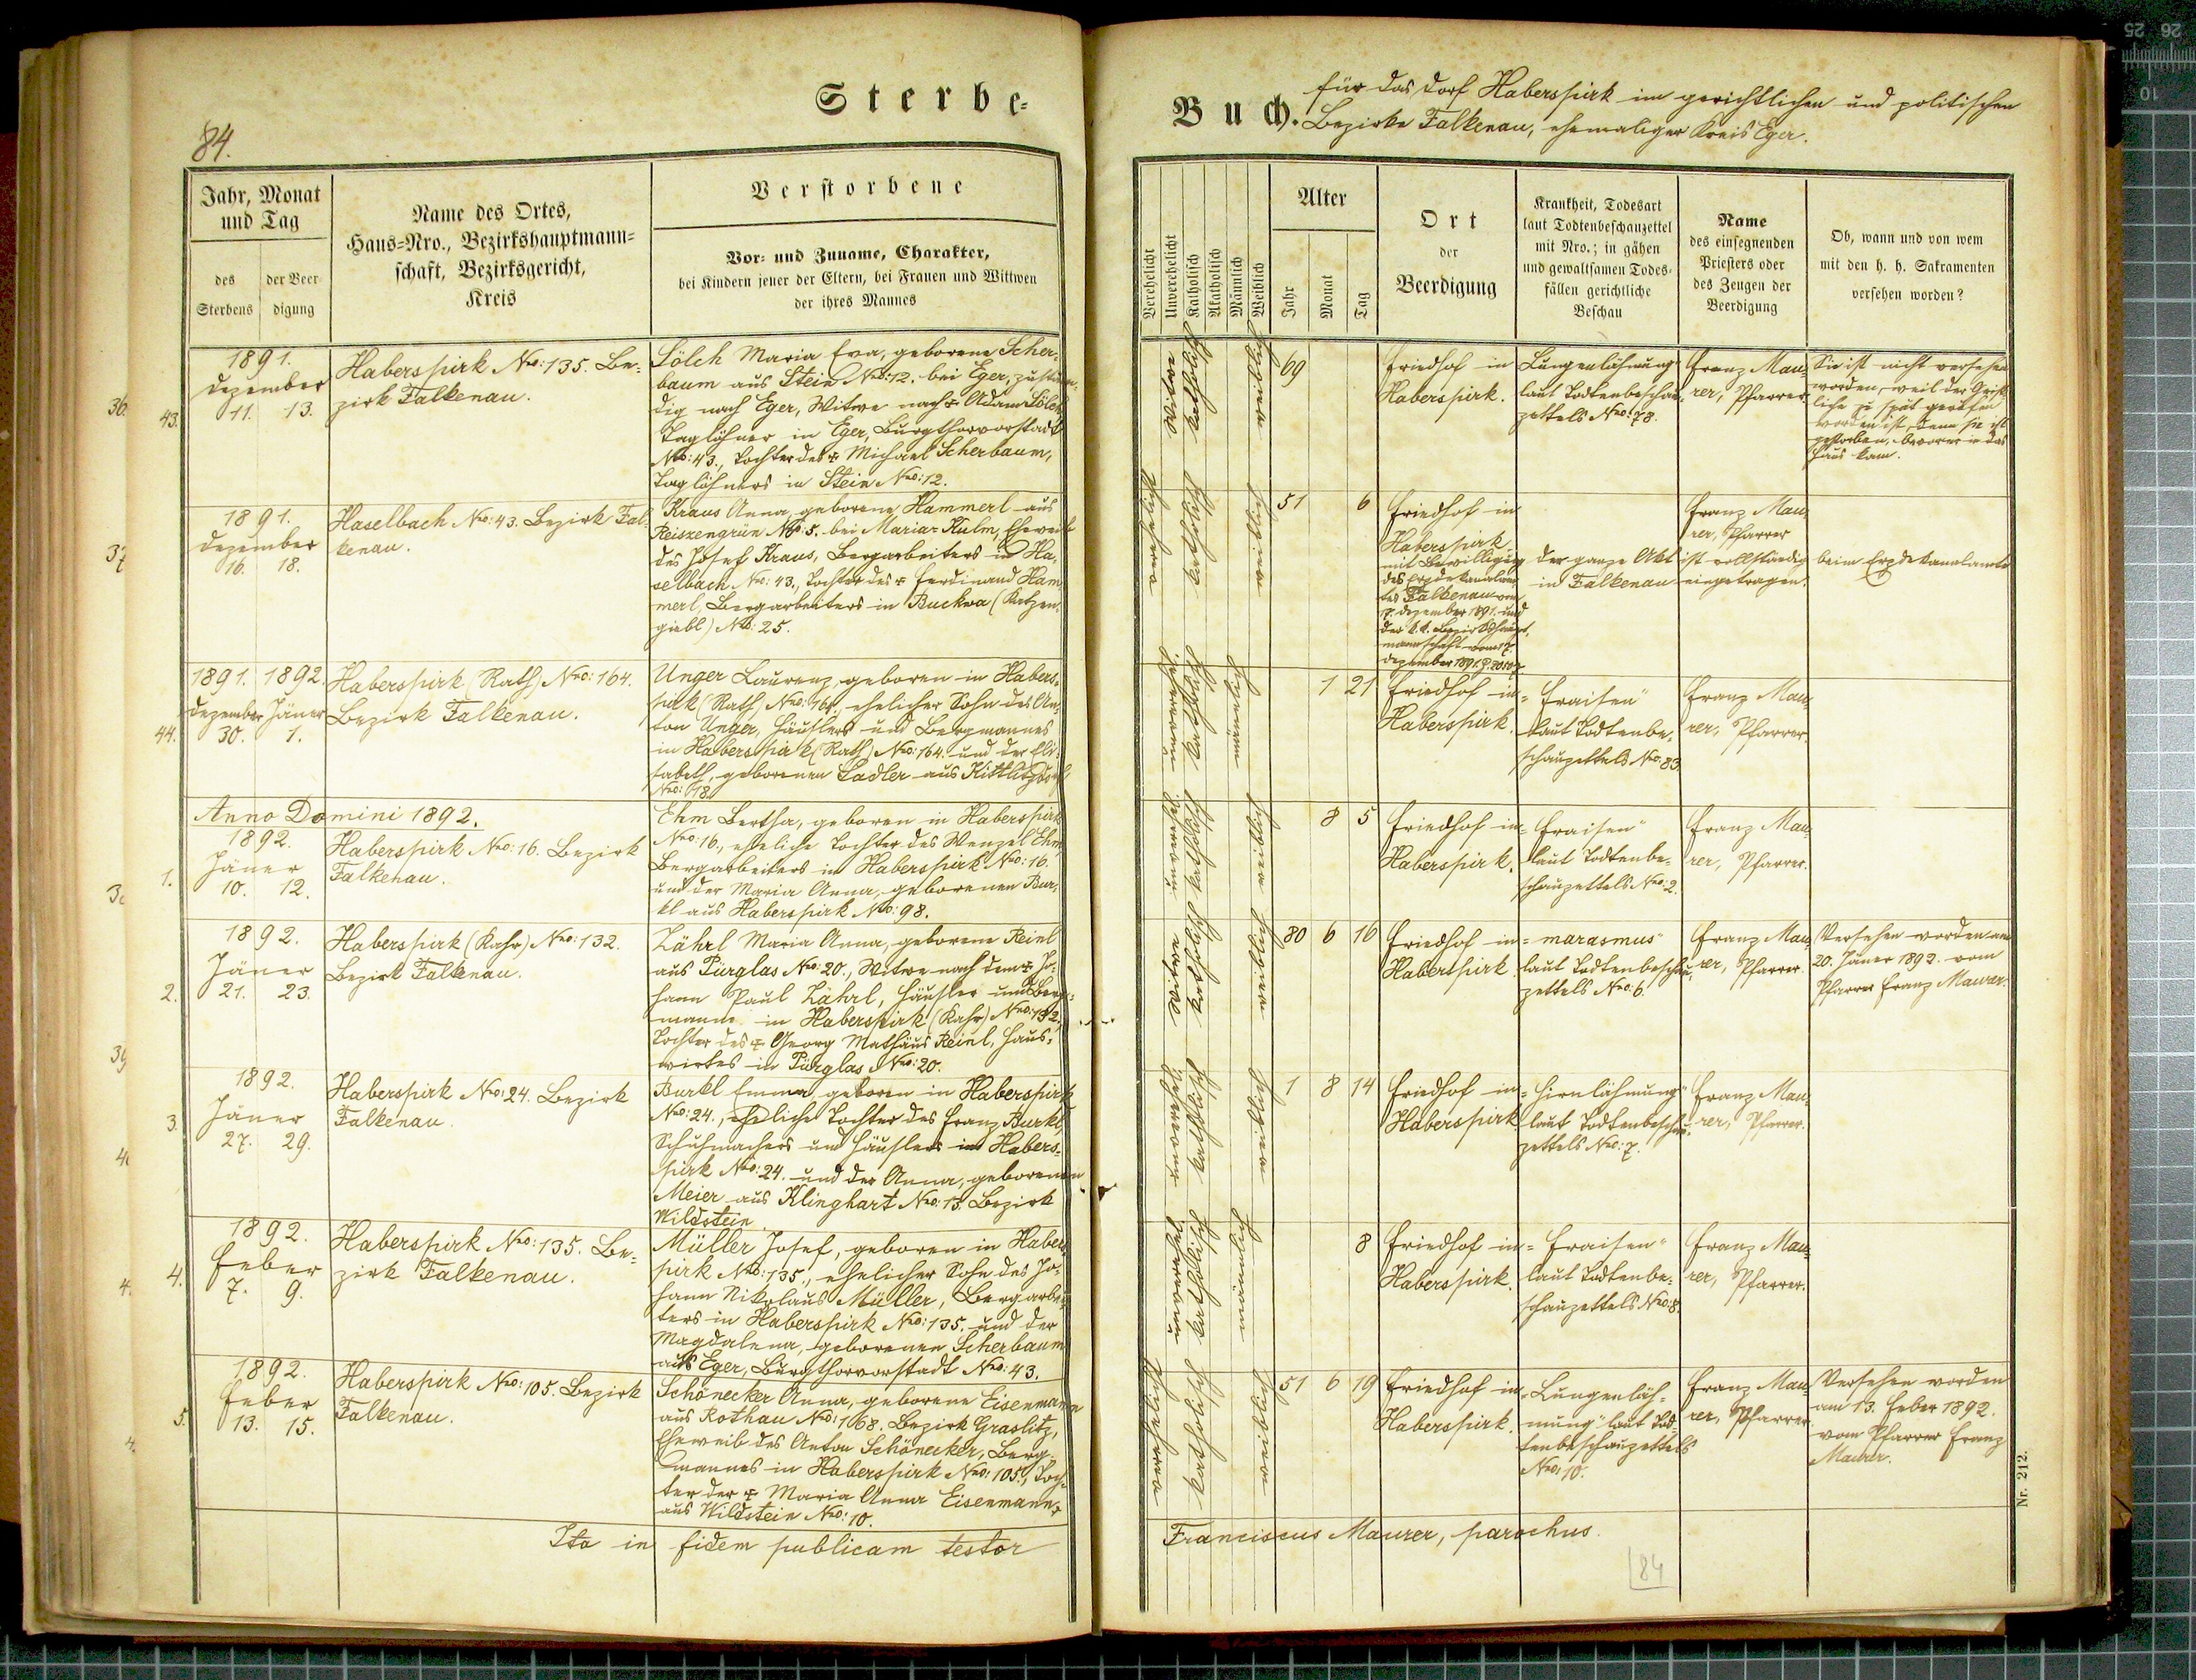 84.
Sterbe-
Buch.
für das Dorf Haberspirk im gerichtlichen und politischen
Bezirke Falkenau, ehemaliger Kreis Eger.
Jahr, Monat
und Tag
des
Sterbens
der Beer-
digung
Name des Ortes,
Haus-Nro., Bezirkshauptmann-
schaft, Bezirksgericht,
Kreis
Verstorbene
Vor- und Zuname, Charakter,
bei Kindern jener der Eltern, bei Frauen und Wittwen
der ihres Mannes
Verehelicht
Unverehelicht
Katholisch
Akatholisch
Männlich
Weiblich
Alter
Jahr
Monat
Tag
Ort
der
Beerdigung
Krankheit, Todesart
laut Todtenbeschauzettel
mit Nro.; in gähen
und gewaltsamen Todes-
fällen gerichtliche
Beschau
Name
des einsegnenden
Priesters oder
des Zeugen der
Beerdigung
Ob, wann und von wem
mit den h. h. Sakramenten
versehen worden?
43.
1891.
Dezember
11. 13.
Haberspirk Nro: 135. Be-
zirk Falkenau.
Lölch Maria Eva, geborene Scher-
baum aus Stein Nro: 12. bei Eger, zustän-
dig nach Eger, Witwe nach + Adam Lölch
Taglöhner in Eger, Burgthorvorstadt
Nro: 43., Tochter des + Michael Scherbaum,
Taglöhners in Stein Nro: 12.
Witwe
katholisch
weiblich
69
Friedhof in
Haberspirk.
Lungenlähmung
laut Todtenbeschau-
zettels Nro: 78.
Franz Mau-
rer, Pfarrer.
Sie ist nicht versehen
worden, weil der Geist-
liche zu spät gerufen
worden ist, denn sie ist
gestorben, bevor er in das
Haus kam.
1891.
Dezember
16. 18.
Haselbach Nro: 43. Bezirk Fal-
kenau.
Kraus Anna, geborene Hammerl aus
Reiszengrün Nro: 5. bei Maria-Kulm, Eheweib
des Josef Kraus, Bergarbeiters in Ha-
selbach Nro: 43., Tochter des + Ferdinand Ham-
merl, Bergarbeiters in Buckwa (Katzen-
giebl) Nro: 25.
verehelicht
katholisch
weiblich
51 6
Friedhof in
Haberspirk
mit Bewilligung
des Erzdekanalam-
tes Falkenau vom
17. Dezember 1891. und
der k.k. Bezirkshaupt-
mannschaft vom 17.
Dezember 1891.
Der ganze Akt ist vollständig beim Erzdekanalamte
in Falkenau eingetragen.
Franz Mau-
rer, Pfarrer
44.
1891. 1892.
Dezember Jäner
30. 1.
Haberspirk (Rath) Nro: 164.
Bezirk Falkenau.
Unger Laurenz, geboren in Habers-
pirk (Rath) Nro: 164., ehelicher Sohn des An-
ton Unger, Häuslers und Bergmannes
in Haberspirk (Rath) Nro: 164. und der Eli-
sabeth, geborenen Sadler aus Kittlitzdorf
Nro: 18.
unverehel.
katholisch
männlich
1 21
Friedhof in
Haberspirk.
"Fraisen"
laut Todtenbe-
schauzettels Nro: 83.
Franz Mau-
rer, Pfarrer.
Anno Domini 1892.
1.
1892.
Jäner
10. 12.
Haberspirk Nro: 16. Bezirk
Falkenau.
Ehm Bertha, geboren in Haberspirk
Nro: 16., eheliche Tochter des Wenzel Ehm
Bergarbeiters in Haberspirk Nro: 16.
und der Maria Anna, geborenen Bur-
kl aus Haberspirk Nro: 98.
unverehel.
katholisch
weiblich
8 5
Friedhof in
Haberspirk.
"Fraisen"
laut Todtenbe-
schauzettels Nro: 2.
Franz Mau-
rer, Pfarrer.
2.
1892.
Jäner
21. 23.
Haberspirk (Kahr) Nro: 132.
Bezirk Falkenau.
Zährl Maria Anna, geborene Reinl
aus Pürglas Nro: 20., Witwe nach dem + Jo-
hann Paul Zährl, Häusler und Berg-
manne in Haberspirk (Kahr) Nro: 132.,
Tochter des + Georg Mathäus Reinl, Haus-
wirtes in Pürglas Nro: 20.
Witwe
katholisch
weiblich
80 6 16
Friedhof in
Haberspirk
"marasmus"
laut Todtenbeschau-
zettels Nro: 6.
Franz Mau-
rer, Pfarrer.
Versehen worden am
20. Jäner 1892. vom
Pfarrer Franz Maurer.
3.
1892.
Jäner
27. 29.
Haberspirk Nro: 24. Bezirk
Falkenau.
Burkl Emma, geboren in Haberspirk
Nro: 24., eheliche Tochter des Franz Burkl
Schuhmachers und Häuslers in Habers-
pirk Nro: 24. und der Anna, geborenen
Meier aus Klinghart Nro: 13. Bezirk
Wildstein.
unverehel.
katholisch
weiblich
1 8 14
Friedhof in
Haberspirk
"Hirnlähmung"
laut Todtenbeschau-
zettels Nro: 7.
Franz Mau-
rer, Pfarrer.
4.
1892.
Feber
7. 9.
Haberspirk Nro: 135. Be-
zirk Falkenau.
Müller Josef, geboren in Habers-
pirk Nro: 135., ehelicher Sohn des Jo-
hann Nikolaus Müller, Bergarbei-
ters in Haberspirk Nro: 135. und der
Magdalena, geborenen Scherbaum
aus Eger, Burgthorvorstadt Nro: 43.
unverehel.
katholisch
männlich
8
Friedhof in
Haberspirk.
"Fraisen"
laut Todtenbe-
schauzettels Nro: 8.
Franz Mau-
rer, Pfarrer.
5.
1892.
Feber
13. 15.
Haberspirk Nro: 105. Bezirk
Falkenau.
Schönecker Anna, geborene Eisenmann
aus Rothau Nro: 168. Bezirk Graslitz,
Eheweib des Anton Schönecker, Berg-
mannes in Haberspirk Nro: 105., Toch-
ter der + Maria Anna Eisenmann,
aus Wildstein Nro: 10.
verehelicht
katholisch
weiblich
51 6 19
Friedhof in
Haberspirk.
"Lungenläh-
mung" laut Tod-
tenbeschauzettels
Nro: 10.
Franz Mau-
rer, Pfarrer.
Versehen worden
am 13. Feber 1892.
vom Pfarrer Franz
Maurer.
Ita in fidem publicam testor
Franciscus Maurer, parochus.
84
Nr. 212.